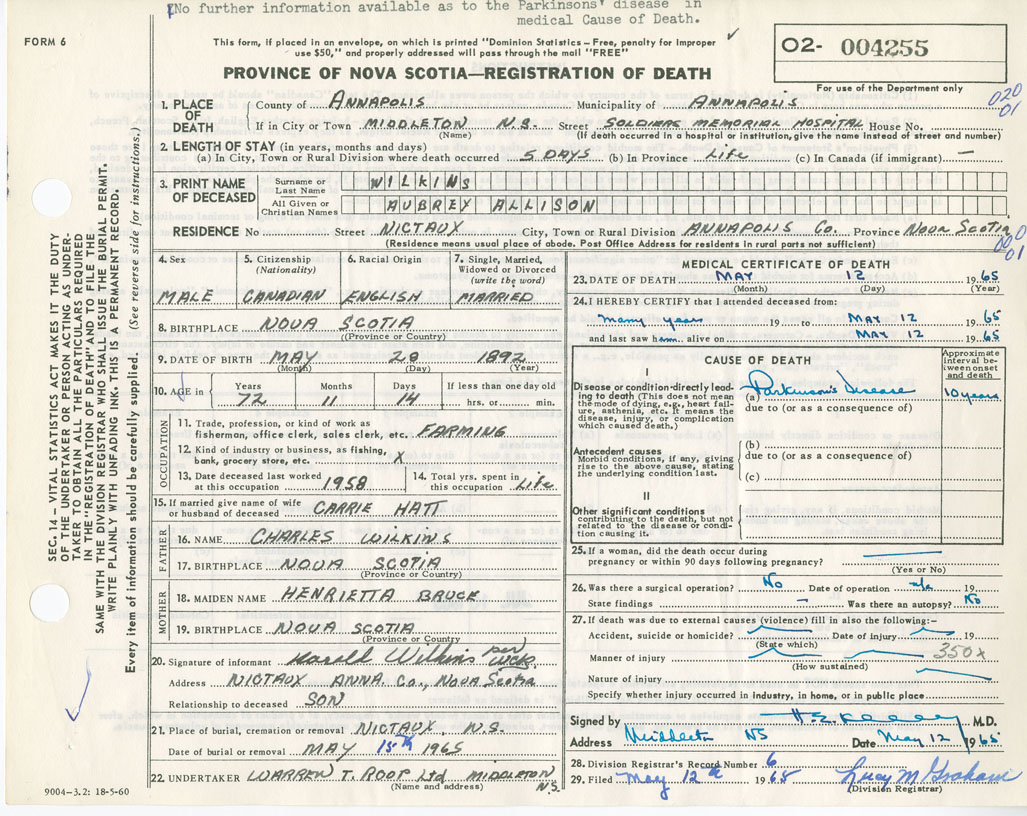 No further information available as to the Parkinsons' disease in
medical Cause of Death.
FORM 6
This form, if placed in an envelope, on which is printed "Dominion Statistics – Free, penalty for improper
use $50," and properly addressed will pass through the mail "FREE"
O2- 004255
For use of the Department only
PROVINCE OF NOVA SCOTIA—REGISTRATION OF DEATH
020
01
1. PLACE OF DEATH
County of ANNAPOLIS Municipality of ANNAPOLIS
If in City or Town MIDDLETON N.S. Street SOLDIERS MEMORIAL HOSPITAL House No.
(Name) (If death occurred in a hospital or institution, give the name instead of street and number)
2. LENGTH OF STAY (in years, months and days)
(a) In City, Town or Rural Division where death occurred 5 DAYS (b) In Province Life (c) In Canada (if immigrant) —
3. PRINT NAME OF DECEASED
Surname or Last Name WILKINS
All Given or Christian Names AUBREY ALLISON
RESIDENCE No Street NICTAUX City, Town or Rural Division ANNAPOLIS Co. Province NOVA SCOTIA
(Residence means usual place of abode. Post Office Address for residents in rural parts not sufficient)
000
01
4. Sex
MALE
5. Citizenship
(Nationality)
CANADIAN
6. Racial Origin
ENGLISH
7. Single, Married,
Widowed or Divorced
(write the word)
MARRIED
8. BIRTHPLACE NOVA SCOTIA
(Province or Country)
9. DATE OF BIRTH MAY 28 1892
(Month) (Day) (Year)
10. AGE in
Years Months Days If less than one day old
72 11 14 hrs. or min.
OCCUPATION
11. Trade, profession, or kind of work as
fisherman, office clerk, sales clerk, etc. FARMING
12. Kind of industry or business, as fishing,
bank, grocery store, etc. X
13. Date deceased last worked
at this occupation 1958
14. Total yrs. spent in
this occupation LIFE
15. If married give name of wife
or husband of deceased CARRIE HATT
FATHER
16. NAME CHARLES WILKINS
17. BIRTHPLACE NOVA SCOTIA
(Province or Country)
MOTHER
18. MAIDEN NAME HENRIETTA BRUCK
19. BIRTHPLACE NOVA SCOTIA
(Province or Country
20. Signature of informant Harold Wilkins per
Address NICTAUX ANNA. Co., NOVA SCOTIA
Relationship to deceased SON
21. Place of burial, cremation or removal NICTAUX, N.S.
Date of burial or removal MAY 15th 1965
22. UNDERTAKER WARREN T. ROOP Ltd MIDDLETON N.S.
(Name and address)
9004–3.2: 18-5-60
MEDICAL CERTIFICATE OF DEATH
23. DATE OF DEATH MAY 12 1965
(Month) (Day) (Year)
24. I HEREBY CERTIFY that I attended deceased from:
many years 19 to MAY 12 1965
and last saw h alive on MAY 12 1965
CAUSE OF DEATH
Approximate interval between onset and death
I
Disease or condition directly leading to death (This does not mean the mode of dying, e.g., heart failure, asthenia, etc. It means the disease, injury, or complication which caused death.)
(a) Parkinson's Disease 10 years
due to (or as a consequence of)
Antecedent causes
Morbid conditions, if any, giving rise to the above cause, stating the underlying condition last.
(b)
due to (or as a consequence of)
(c)
II
Other significant conditions
contributing to the death, but not related to the disease or condition causing it.
25. If a woman, did the death occur during
pregnancy or within 90 days following pregnancy?
(Yes or No)
26. Was there a surgical operation? No Date of operation n/a 19
State findings – Was there an autopsy? No
27. If death was due to external causes (violence) fill in also the following:–
Accident, suicide or homicide? Date of injury 19
(State which)
Manner of injury 350x
(How sustained)
Nature of injury
Specify whether injury occurred in industry, in home, or in public place
Signed by M.D.
Address Middleton NS Date May 12 1965
28. Division Registrar's Record Number 6
29. Filed May 12th 1965 Lucy M Graham
(Division Registrar)
SEC. 14 – VITAL STATISTICS ACT MAKES IT THE DUTY
OF THE UNDERTAKER OR PERSON ACTING AS UNDER-
TAKER TO OBTAIN ALL THE PARTICULARS REQUIRED
IN THE "REGISTRATION OF DEATH" AND TO FILE THE
SAME WITH THE DIVISION REGISTRAR WHO SHALL ISSUE THE BURIAL PERMIT.
WRITE PLAINLY WITH UNFADING INK. THIS IS A PERMANENT RECORD.
Every item of information should be carefully supplied. (See reverse side for instructions.)